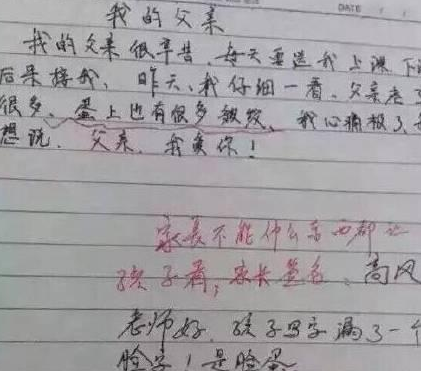 DATE
我的父亲
我的父亲很辛苦,每天要送我上课下课
后来接我,昨天,我仔细一看,父亲老了
很多,蛋上也有很多皱纹,我心痛极了,我
想说,父亲,我爱你!
家长不能什么东西都让
孩子看,家长签名:高风
老师好,孩子写字漏了一个
脸字!是脸蛋